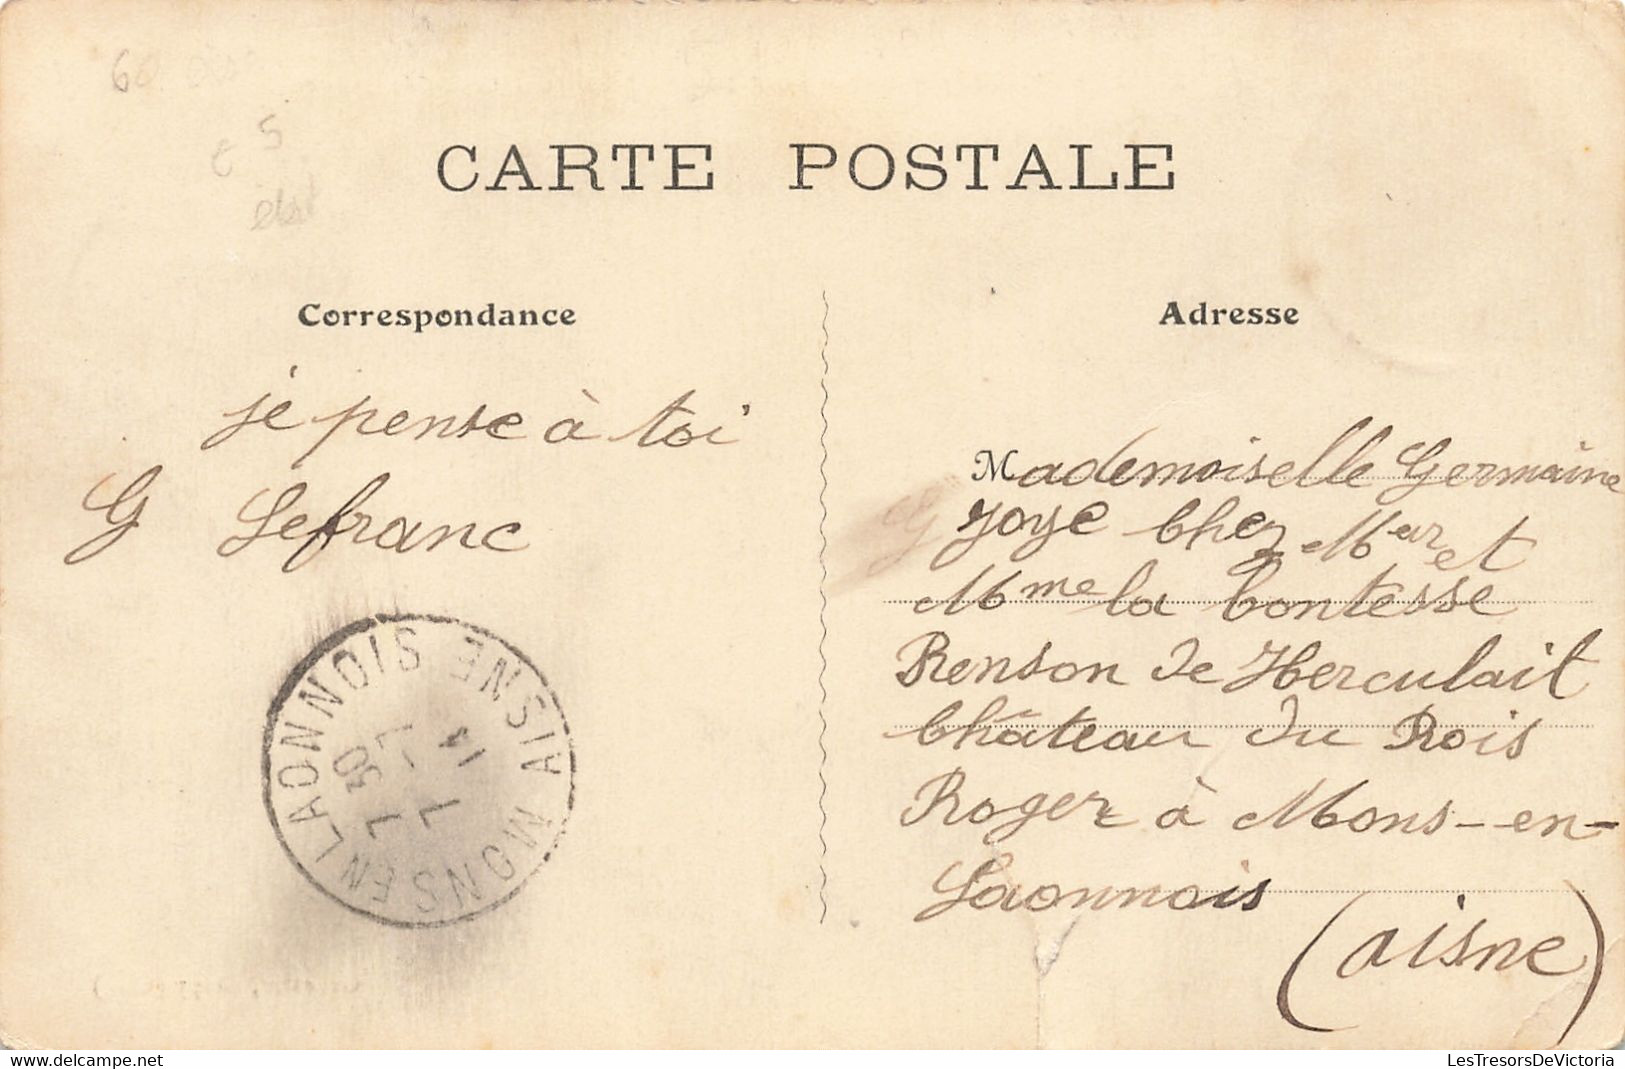 60
5
CARTE POSTALE
Correspondance
je pense à toi
G Lefranc
MONS EN LAONNOIS AISNE
7 30
7
7
14
Adresse
Mademoiselle Germaine
Joye Chez Mer et
Mme la Contesse
Renson de Herculait
Château du Rois
Roger à Mons-en-
Laonnois
(aisne)
LesTresorsDeVictoria